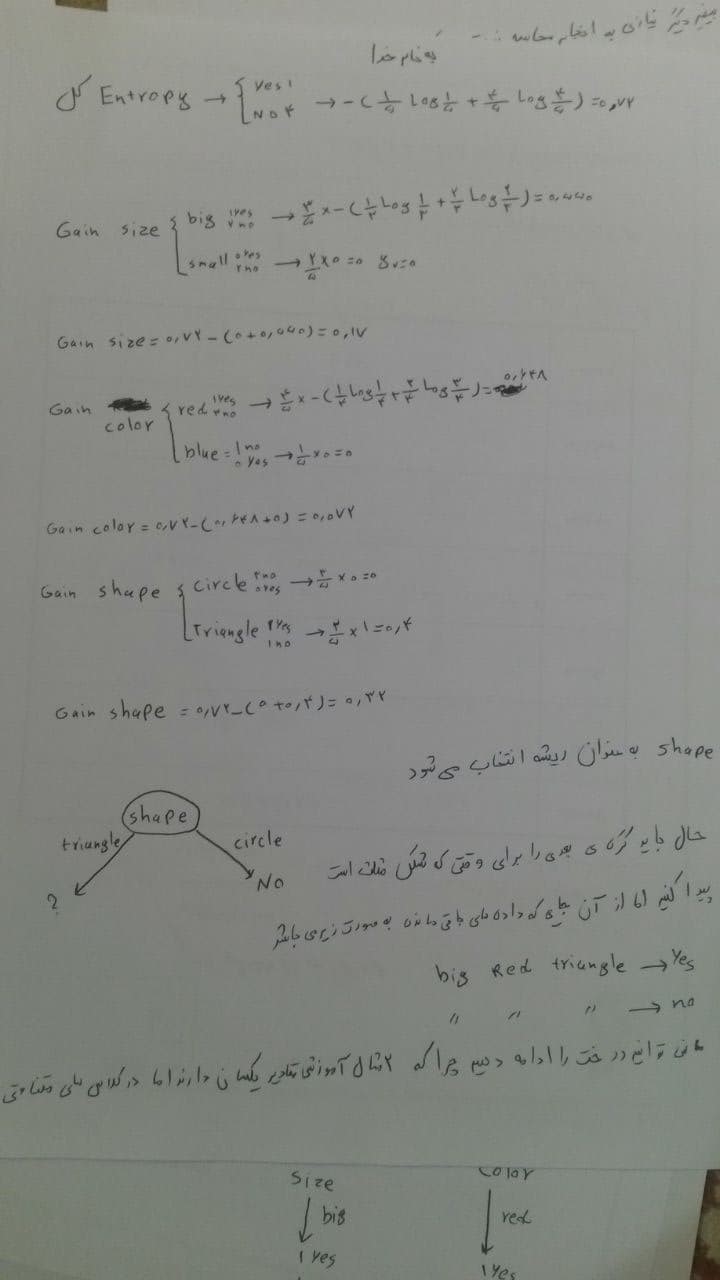 دیگر نیازی به انجام محاسبه
به نام خدا
کل Entropy → { Yes ۱ No ۴ → -(۱/۵ Log ۱/۵ + ۴/۵ Log ۴/۵) = ۰,۷۲
Gain size { big ۱yes ۲no → ۳/۵ × -(۱/۳ Log ۱/۳ + ۲/۳ Log ۲/۳) = ۰,۵۵۰
small ۰yes ۲no → ۲/۵ × ۰ = ۰
Gain size = ۰,۷۲ - (۰ + ۰,۵۵۰) = ۰,۱۷
Gain color { red ۱yes ۳no → ۴/۵ × -(۱/۴ Log ۱/۴ + ۳/۴ Log ۳/۴) = ۰,۶۴۸
blue = ۱no ۰yes → ۱/۵ × ۰ = ۰
Gain color = ۰,۷۲ - (۰,۶۴۸ + ۰) = ۰,۰۷۲
Gain shape { circle ۳no ۰yes → ۳/۵ × ۰ = ۰
Triangle ۱yes ۱no → ۲/۵ × ۱ = ۰,۴
Gain shape = ۰,۷۲ - (۰ + ۰,۴) = ۰,۳۲
shape به عنوان ریشه انتخاب می شود
shape
triangle circle
? No
حال باید گره ی بعدی را برای وقتی که شکل مثلث است
پیدا کنیم اما از آن جایی که داده های باقی مانده به صورت زیر می باشد
big Red triangle → Yes
〃 〃 〃 → no
نمی توانیم درخت را ادامه دهیم چرا که ۲ مثال آموزشی مقادیر یکسان دارند اما در کلاس های متفاوتی
size color
big red
۱ Yes ۱ Yes